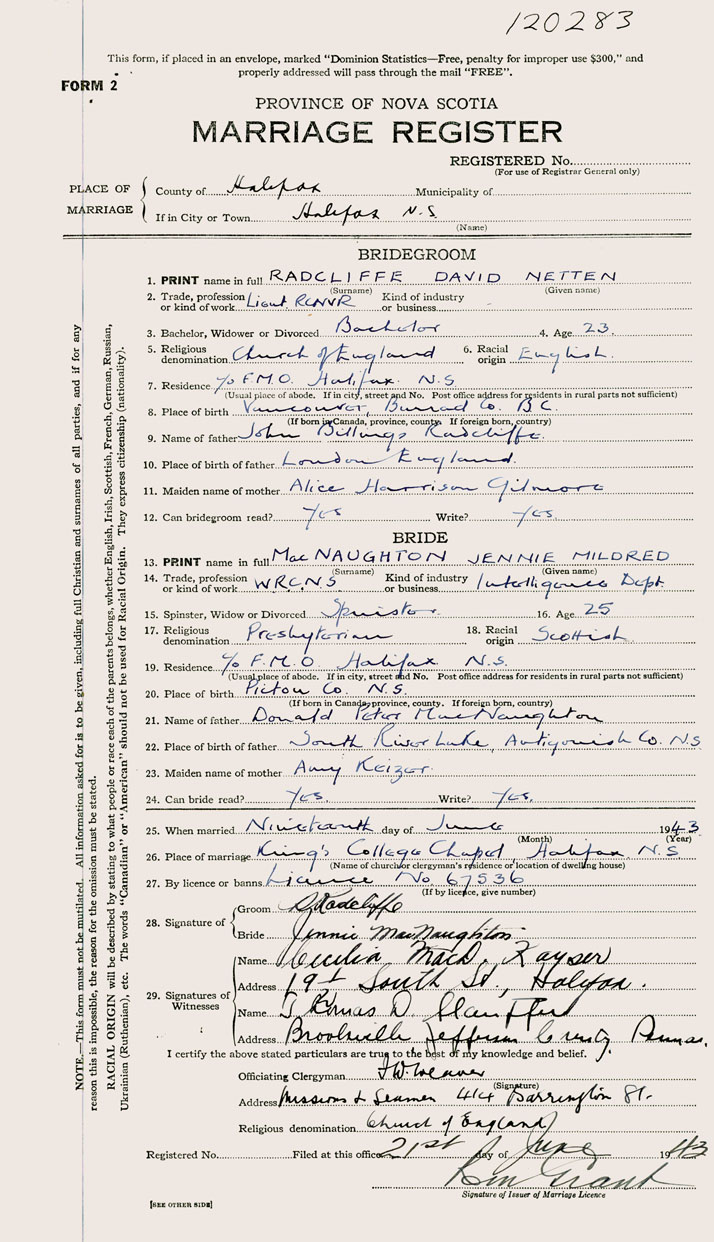 120283
This form, if placed in an envelope, marked "Dominion Statistics—Free, penalty for improper use $300," and
properly addressed will pass through the mail "FREE".
FORM 2
PROVINCE OF NOVA SCOTIA
MARRIAGE REGISTER
REGISTERED No.
(For use of Registrar General only)
PLACE OF MARRIAGE
County of Halifax Municipality of
If in City or Town Halifax N.S.
(Name)
BRIDEGROOM
1. PRINT name in full RADCLIFFE DAVID NETTEN
(Surname) (Given name)
2. Trade, profession or kind of work Lieut. RCNVR Kind of industry or business
3. Bachelor, Widower or Divorced Bachelor 4. Age 23.
5. Religious denomination Church of England 6. Racial origin English.
7. Residence c/o F.M.O. Halifax N.S.
(Usual place of abode. If in city, street and No. Post office address for residents in rural parts not sufficient)
8. Place of birth Vancouver, Burrad Co. B.C.
(If born in Canada, province, county. If foreign born, country)
9. Name of father John Billings Radcliffe.
10. Place of birth of father London England.
11. Maiden name of mother Alice Harrison Gilmore
12. Can bridegroom read? Yes Write? Yes.
BRIDE
13. PRINT name in full MacNAUGHTON JENNIE MILDRED
(Surname) (Given name)
14. Trade, profession or kind of work W.R.C.N.S Kind of industry or business Intelligence Dept.
15. Spinster, Widow or Divorced Spinster. 16. Age 25
17. Religious denomination Presbyterian 18. Racial origin Scottish.
19. Residence c/o F.M.O. Halifax N.S.
(Usual place of abode. If in city, street and No. Post office address for residents in rural parts not sufficient)
20. Place of birth Pictou Co. N.S.
(If born in Canada, province, county. If foreign born, country)
21. Name of father Donald Peter MacNaughton
22. Place of birth of father South River Lake, Antigonish Co. N.S
23. Maiden name of mother Amy Keizer.
24. Can bride read? Yes. Write? Yes.
25. When married Nineteenth day of June 1943
(Month) (Year)
26. Place of marriage King's College Chapel, Halifax, N.S
(Name of church or clergyman's residence or location of dwelling house)
27. By licence or banns Licence No. 67536
(If by licence, give number)
28. Signature of
Groom D Radcliffe
Bride Jennie MacNaughton
29. Signatures of Witnesses
Name Cecilia MacD. Kayser
Address South St., Halifax.
Name Thomas D.
Address Brookville Jefferson County Penna.
I certify the above stated particulars are true to the best of my knowledge and belief.
Officiating Clergyman
(Signature)
Address Missions to Seamen 414 Barrington St.
Religious denomination Church of England
Registered No. Filed at this office 21st day of June 1943
Grant
Signature of Issuer of Marriage Licence
[SEE OTHER SIDE]
NOTE.—This form must not be mutilated. All information asked for is to be given, including full Christian and surnames of all parties, and if for any
reason this is impossible, the reason for the omission must be stated.
RACIAL ORIGIN will be described by stating to what people or race each of the parents belongs, whether English, Irish, Scottish, French, German, Russian,
Ukrainian (Ruthenian), etc. The words "Canadian" or "American" should not be used for Racial Origin. They express citizenship (nationality).